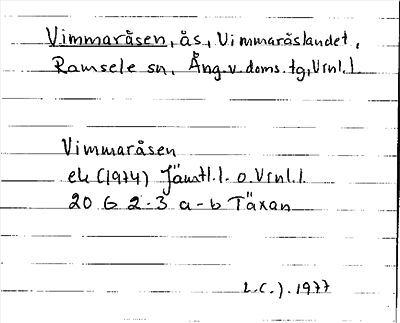 Vimmaråsen, ås, Vimmaråslandet,
Ramsele sn, Ång.v.doms.tg, Vrnl.l.
Vimmaråsen
ek (1974) Jämtl.l. o. Vrnl.l.
20 G 2-3 a-b Täxan
L.C.J. 1977